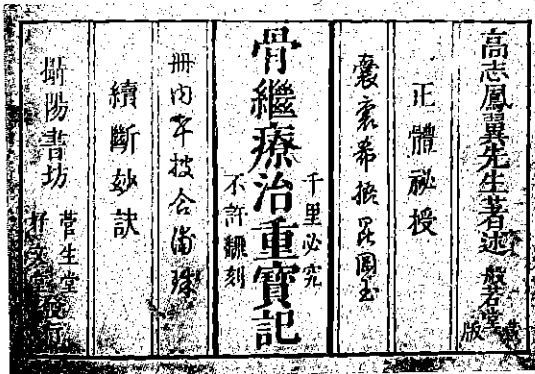 高志鳳翼先生著述 般若堂
版
正體祕授
囊裏希握昆岡玉
骨繼療治重寶記
千里必究
不許翻刻
册内平披合浦珠
續斷妙訣
陽書坊
菅生堂
發行